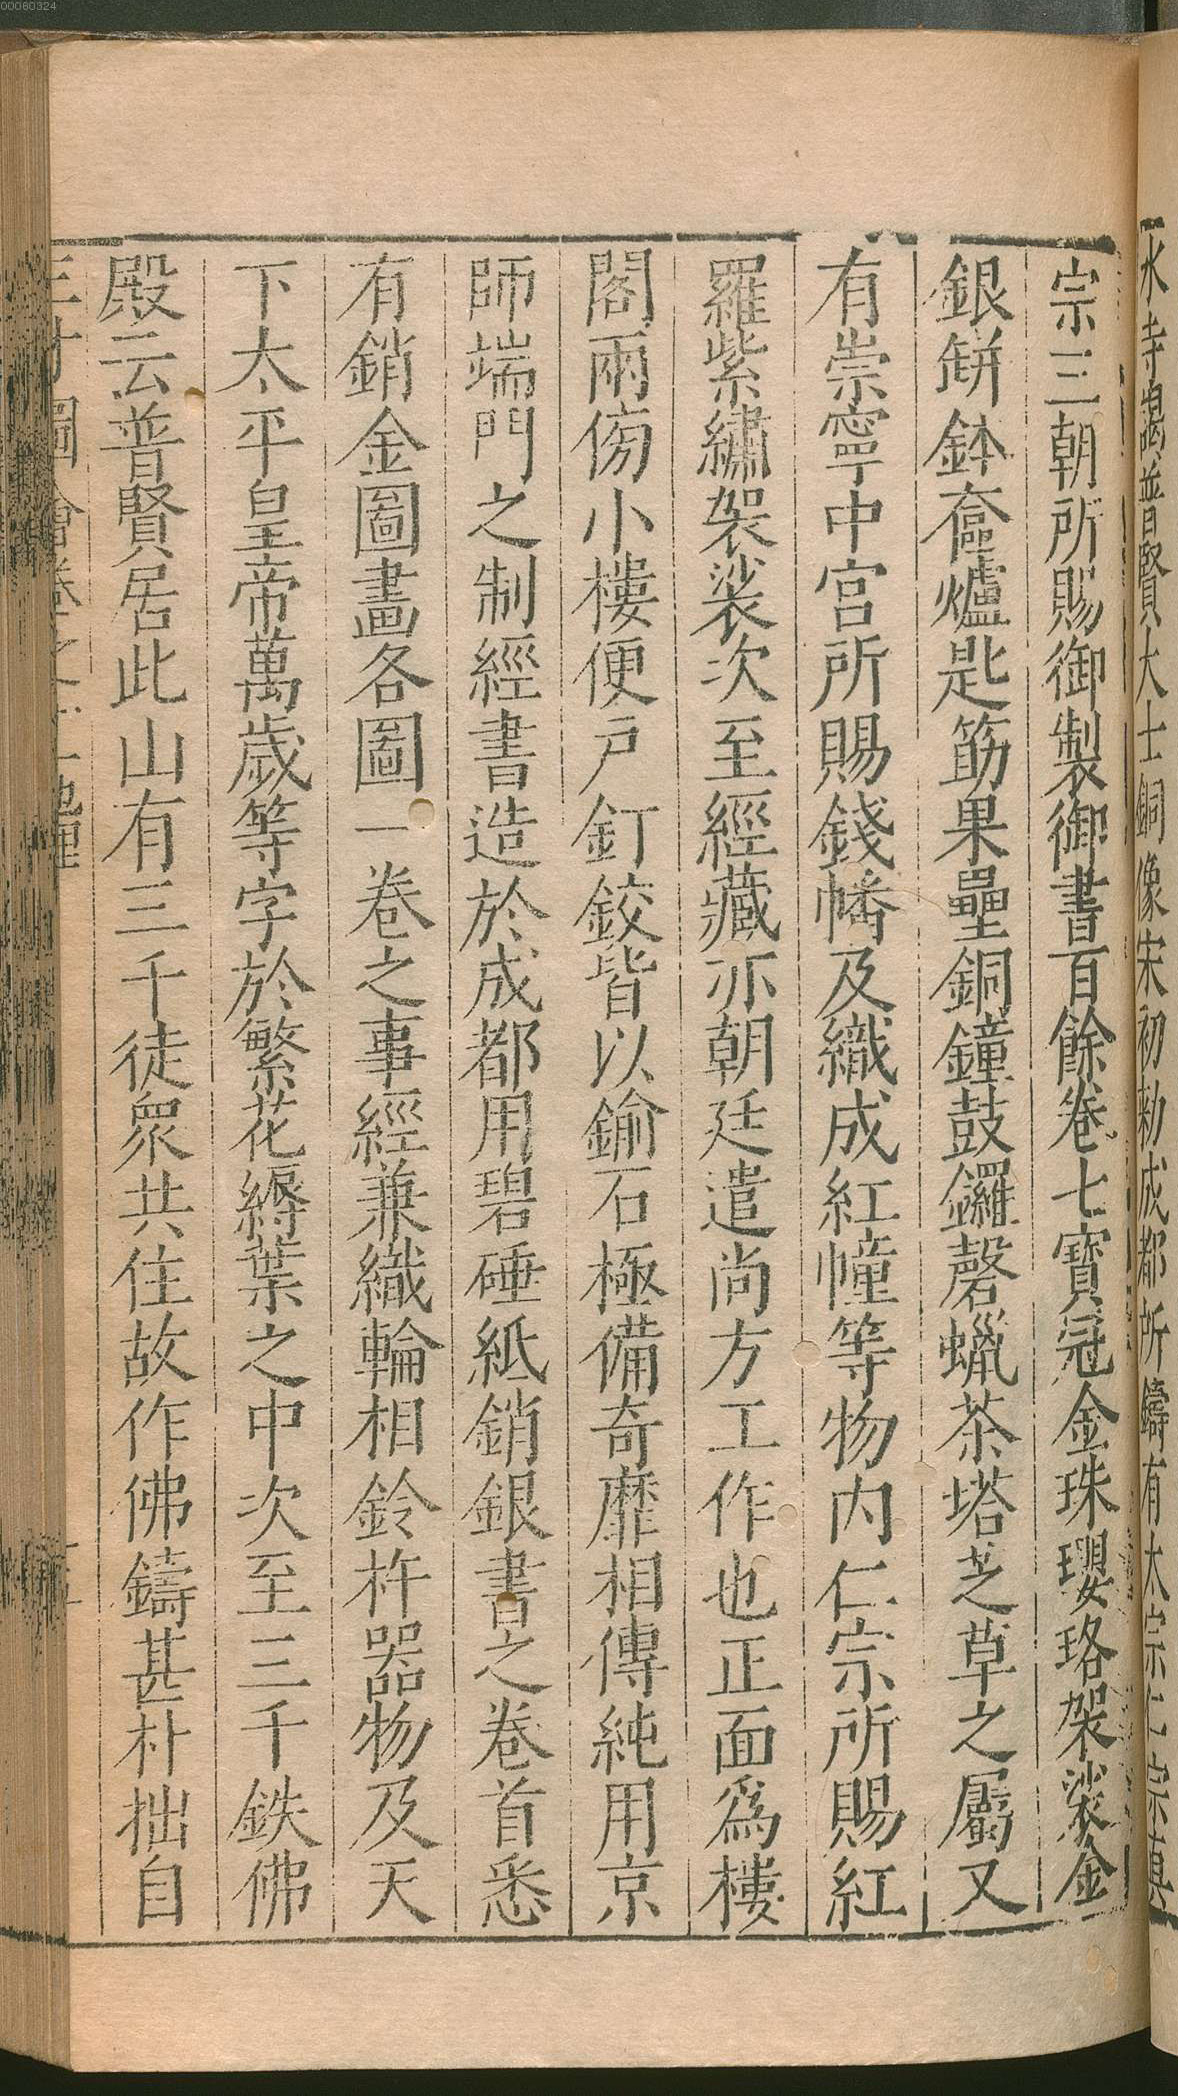 00060324
水寺謁普賢大士銅像宋初勅成都所鑄有太宗仁宗真
宗三朝所賜御製御書百餘卷七寶冠金珠瓔珞袈裟金
銀缾鉢奩爐匙筯果壘銅鐘鼓鑼磬蠟茶塔芝草之屬又
有崇寧中宮所賜錢幡及織成紅幢等物内仁宗所賜紅
羅紫繡袈裟次至經藏亦朝廷遣尚方工作也正面為樓
閣兩傍小樓便戸釘鉸皆以鍮石極備奇靡相傳純用京
師端門之制經書造於成都用碧硾紙銷銀書之卷首悉
有銷金圖畫各圖一卷之事經兼織輪相鈴杵器物及天
下太平皇帝萬歲等字於繁花縟葉之中次至三千鉄佛
殿云普賢居此山有三千徒衆共住故作佛鑄甚朴拙自
三才圖會卷之